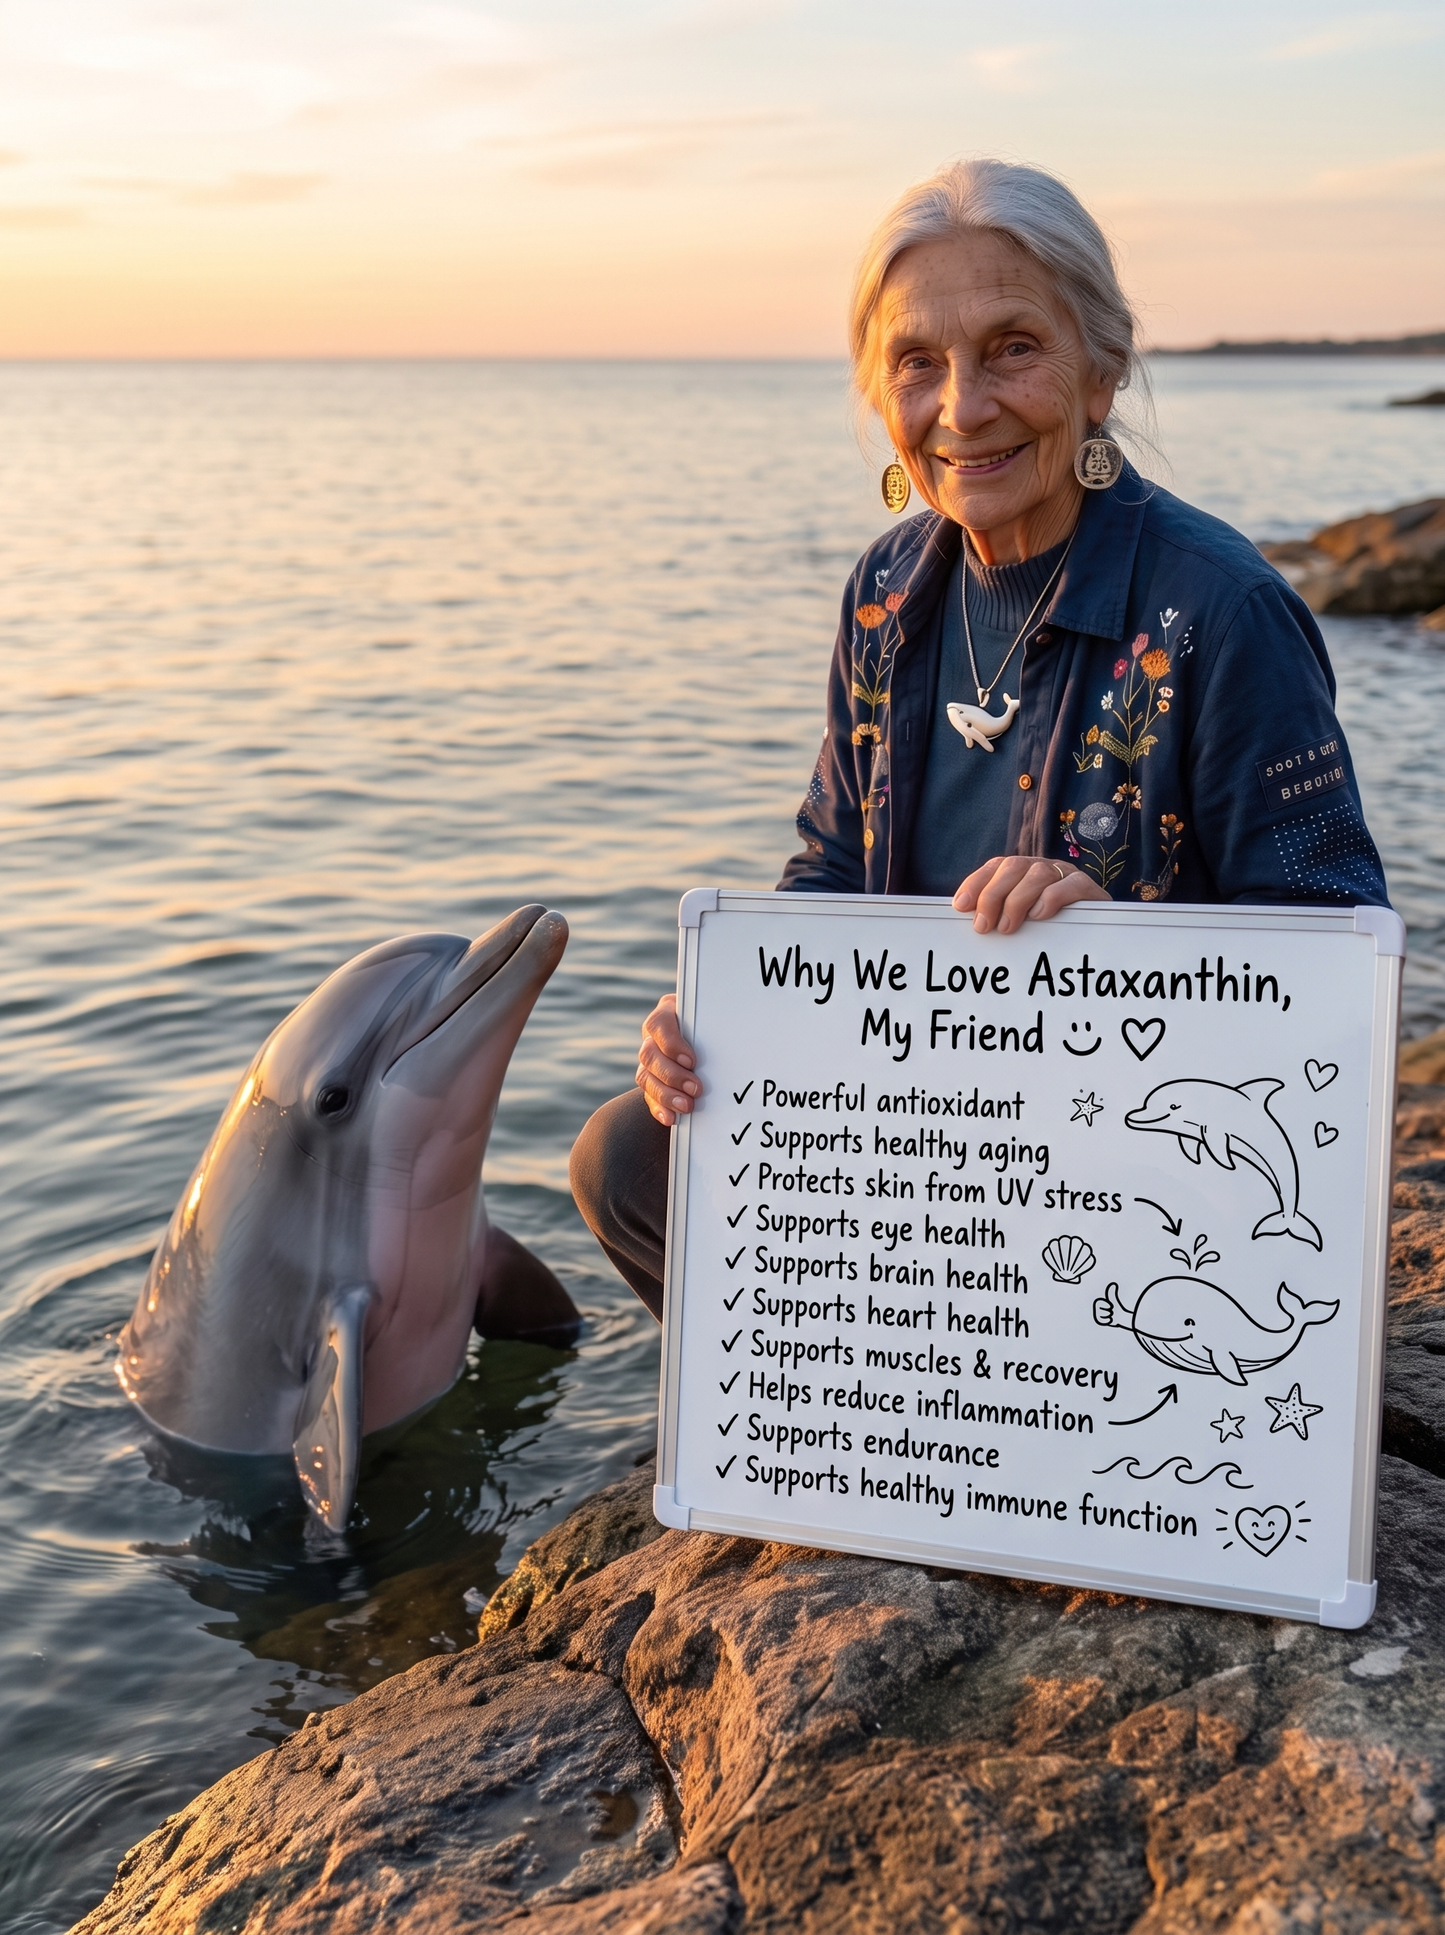 Why We Love Astaxanthin,
My Friend
✓ Powerful antioxidant
✓ Supports healthy aging
✓ Protects skin from UV stress
✓ Supports eye health
✓ Supports brain health
✓ Supports heart health
✓ Supports muscles & recovery
✓ Helps reduce inflammation
✓ Supports endurance
✓ Supports healthy immune function